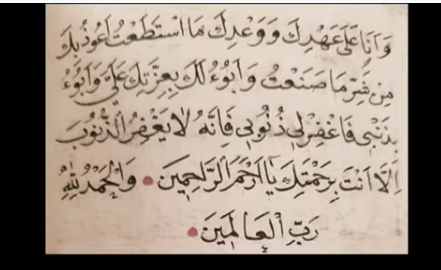 وَاَنَا عَلَى عَهْدِكَ وَوَعْدِكَ مَا اسْتَطَعْتُ اَعُوذُ بِكَ
مِنْ شَرِّ مَا صَنَعْتُ وَاَبُوءُ لَكَ بِعِزَّتِكَ عَلَيَّ وَاَبُوءُ
بِذَنْبِى فَاغْفِرْ لِى ذُنُوبِى فَاِنَّهُ لَا يَغْفِرُ الذُّنُوبَ
اِلَّا اَنْتَ بِرَحْمَتِكَ يَا اَرْحَمَ الرَّاحِمِينَ وَالْحَمْدُ لِلّٰهِ
رَبِّ الْعَالَمِينَ